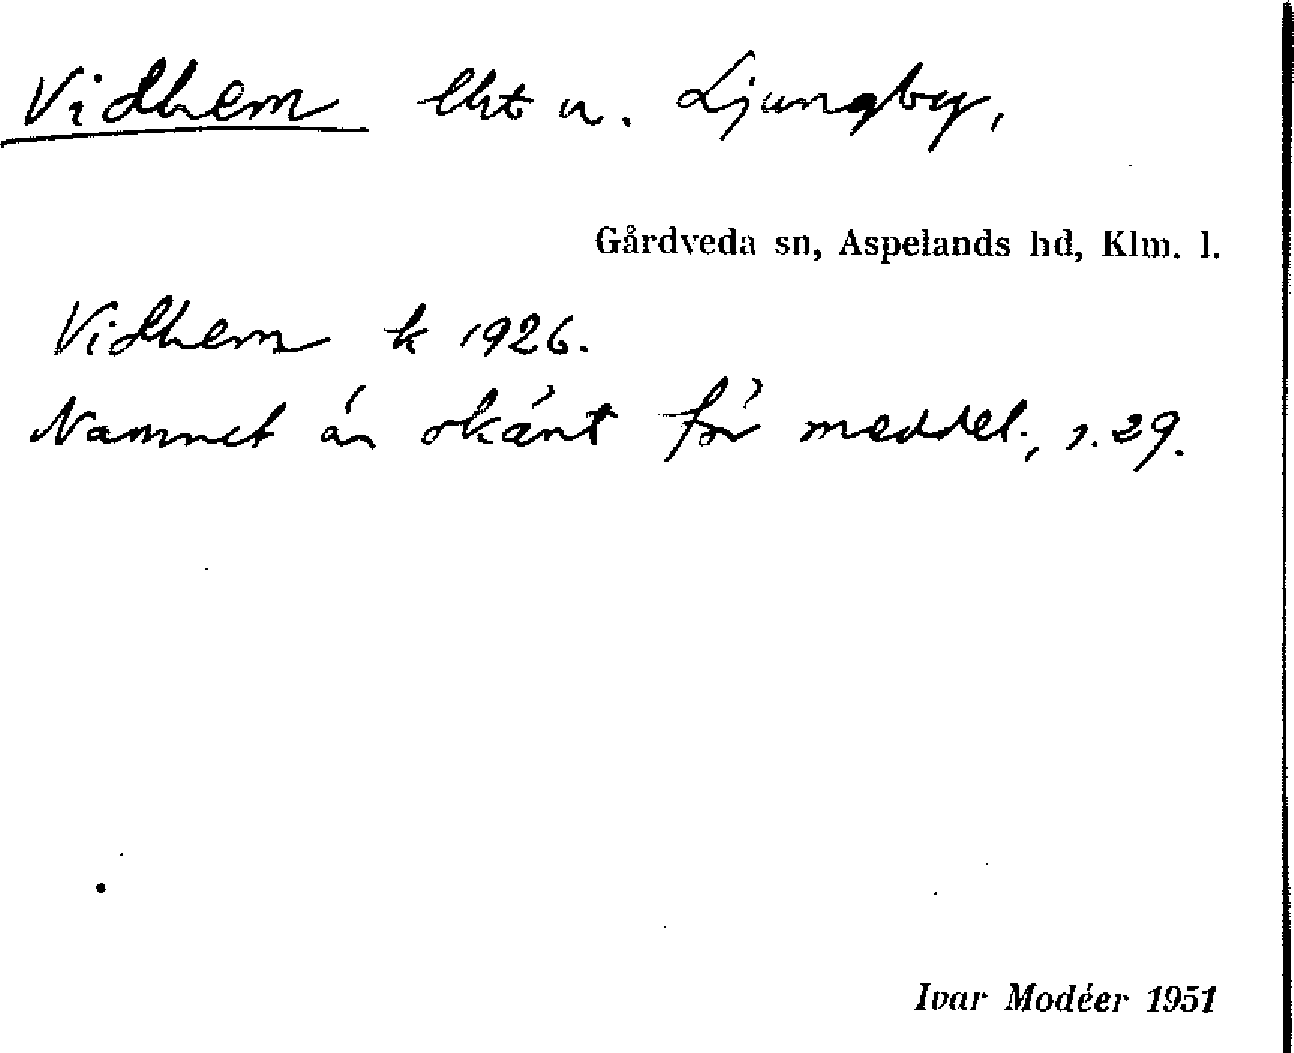 Vidhem lht u. Ljungby,
Gårdveda sn, Aspelands hd, Klm. l.
Vidhem k 1926.
Namnet är okänt för meddel., s. 29.
Ivar Modéer 1951